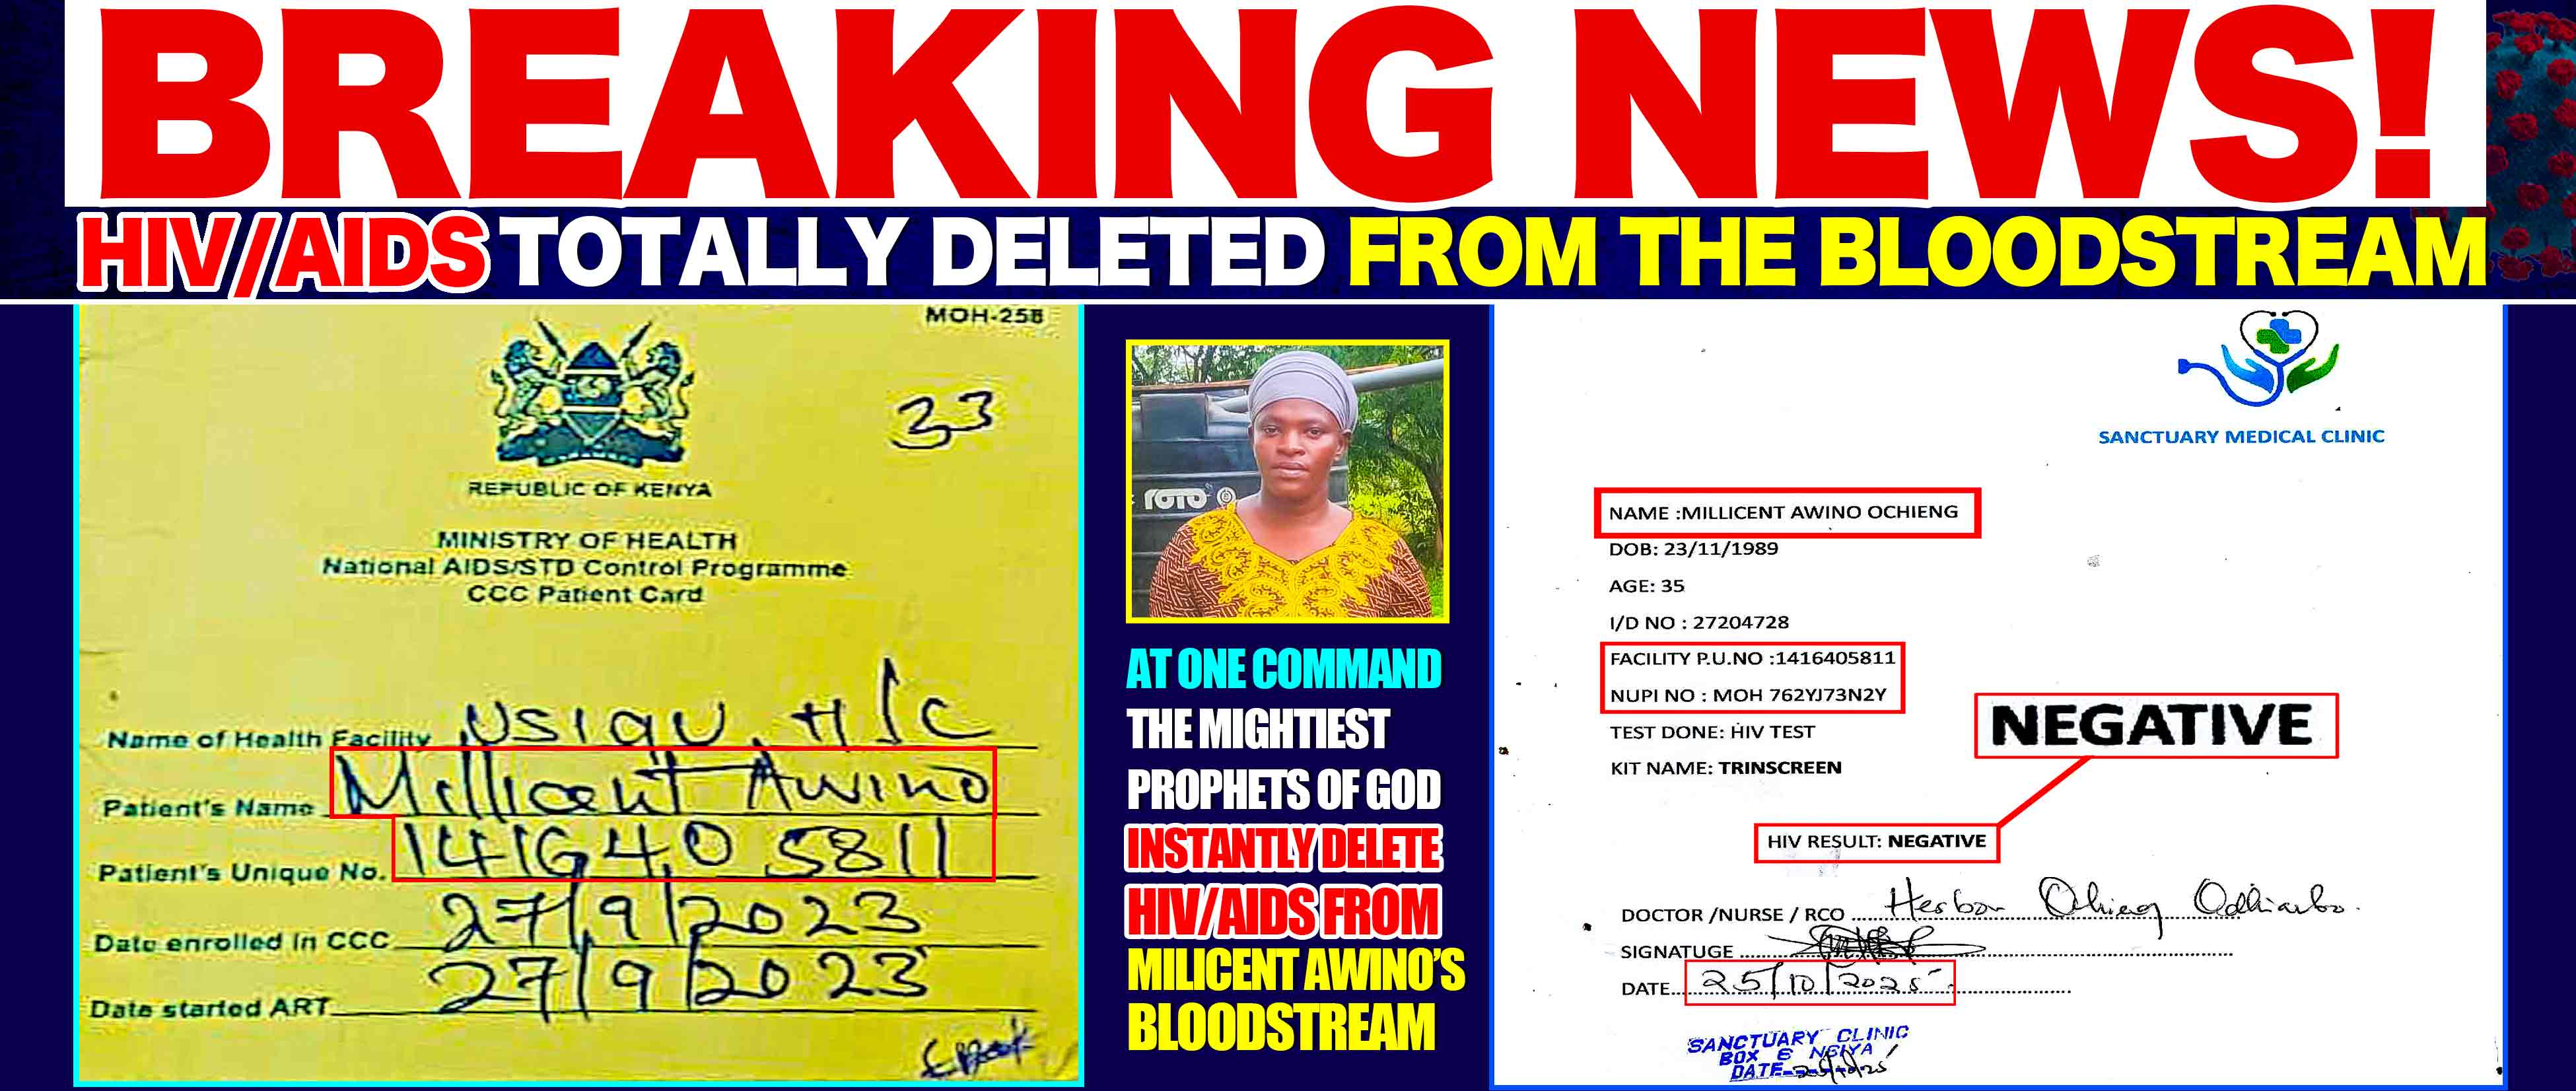 BREAKING NEWS!
HIV/AIDS TOTALLY DELETED FROM THE BLOODSTREAM
MOH-258
33
REPUBLIC OF KENYA
MINISTRY OF HEALTH
National AIDS/STD Control Programme
CCC Patient Card
Name of Health Facility H/C
Patient's Name Millicent Awino
Patient's Unique No. 1416405811
Date enrolled in CCC 27/9/2023
Date started ART 27/9/2023
ROTO
AT ONE COMMAND
THE MIGHTIEST
PROPHETS OF GOD
INSTANTLY DELETE
HIV/AIDS FROM
MILICENT AWINO'S
BLOODSTREAM
SANCTUARY MEDICAL CLINIC
NAME :MILLICENT AWINO OCHIENG
DOB: 23/11/1989
AGE: 35
I/D NO : 27204728
FACILITY P.U.NO :1416405811
NUPI NO : MOH 762YJ73N2Y
TEST DONE: HIV TEST
KIT NAME: TRINSCREEN
NEGATIVE
HIV RESULT: NEGATIVE
DOCTOR /NURSE / RCO
SIGNATUGE
DATE 25/10/2025
SANCTUARY CLINIC
BOX 6 NGIYA
DATE